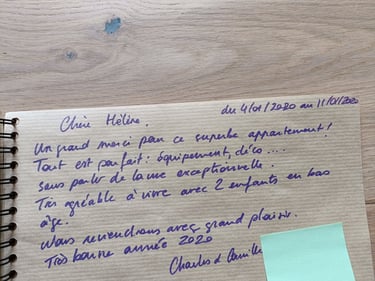 du 4/01/2020 au 11/01/2020
Chère Hélène.
Un grand merci pour ce superbe appartement !
Tout est parfait : équipement, déco ....
sans parler de la vue exceptionnelle.
Très agréable à vivre avec 2 enfants en bas
âge.
Nous reviendrons avec grand plaisir.
Très bonne année 2020
Charles & Camille